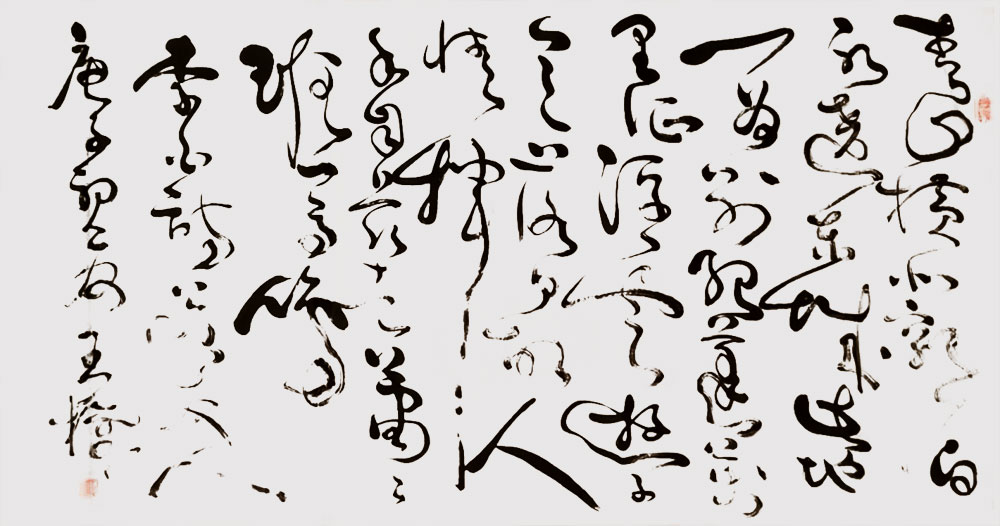 青山横北郭白
水遶東城此地
一為别孤蓬万
里征浮雲遊子
意落日故人
情揮
手自兹去蕭々
班馬鳴
李白詩送友人
庚子